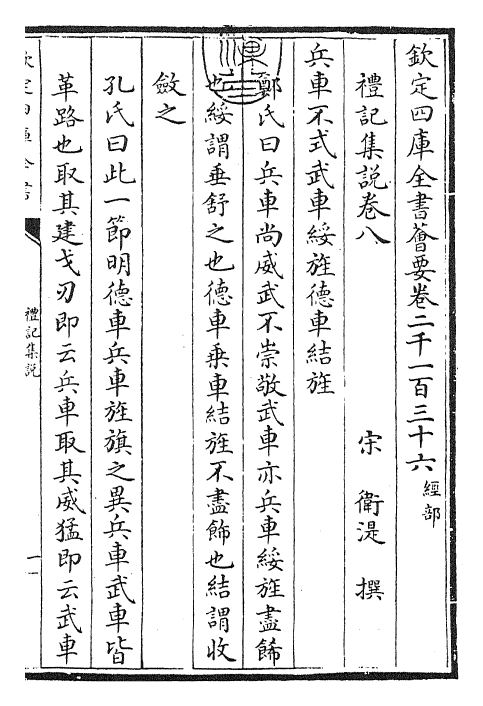 欽定四庫全書薈要卷二千一百三十六經部
禮記集說卷八
宋 衛湜 撰
兵車不式武車綏旌德車結旌
鄭氏曰兵車尚威武不崇敬武車亦兵車綏旌盡飾
也綏謂垂舒之也德車乗車結旌不盡飾也結謂收
斂之
孔氏曰此一節明德車兵車旌旗之異兵車武車皆
革路也取其建戈刃即云兵車取其威猛即云武車
禮記集說
一